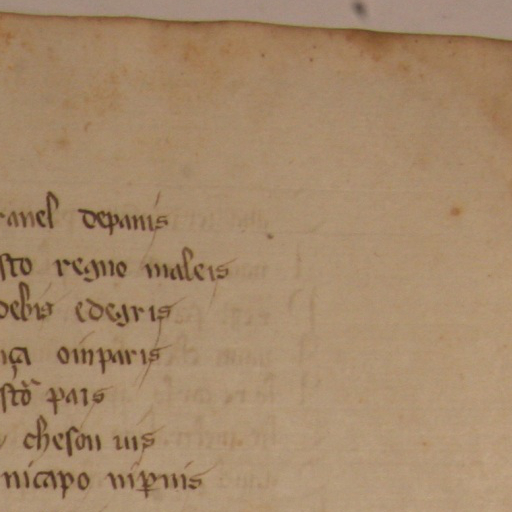 ranel depanis
sto regno maleis
debis edegris
nça oinparis
stõ pais
cheson uis
nicapo nip̱uis